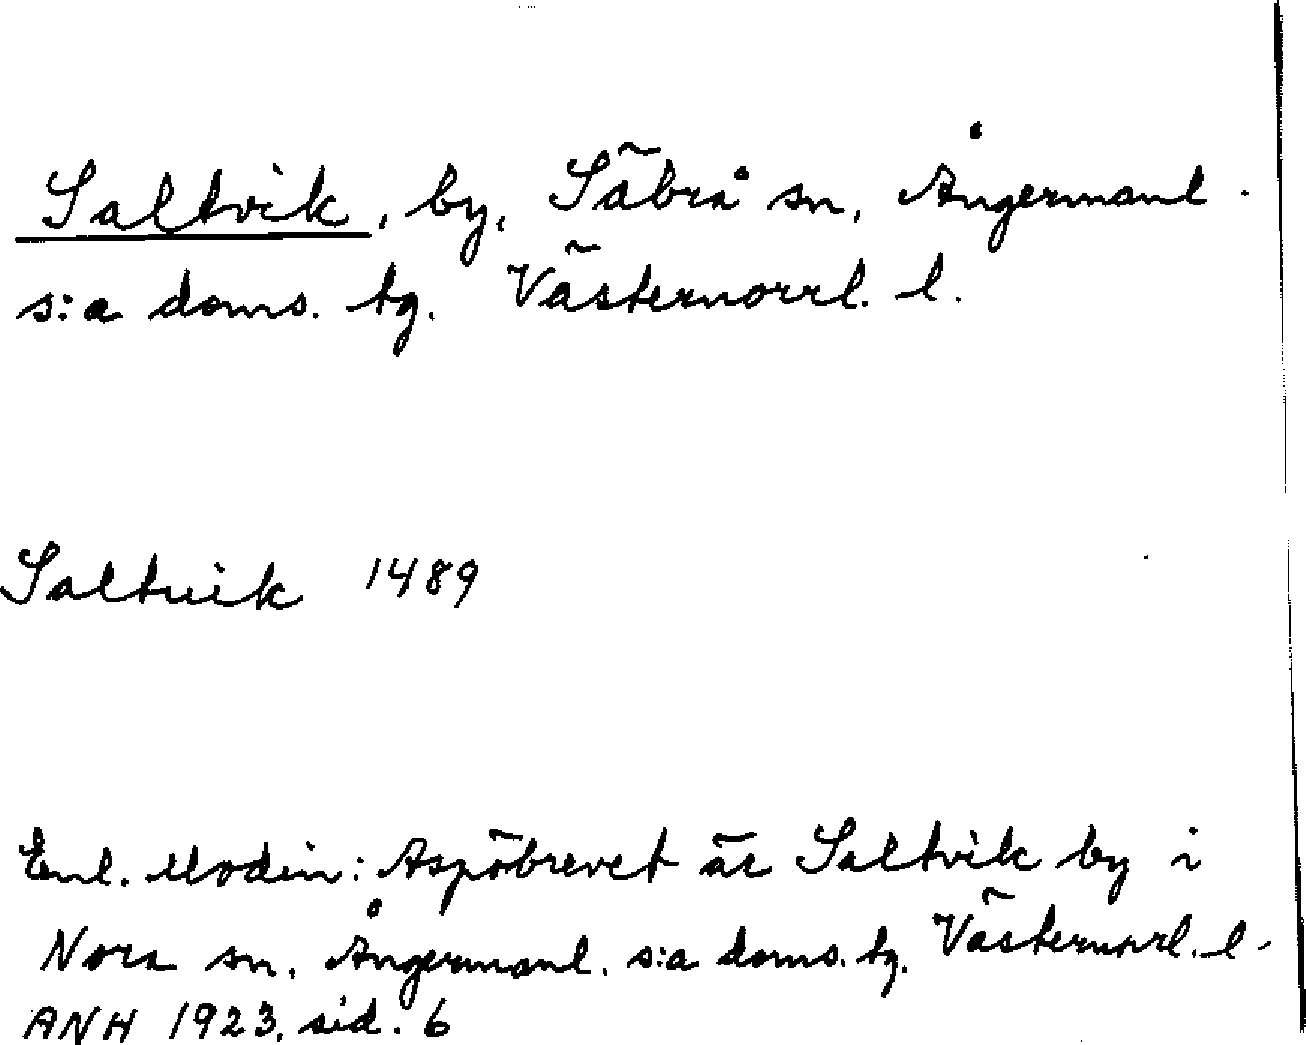 Saltvik, by, Säbrå sn, Ångermanl.
s:a doms. tg. Västernorrl. l.
Saltuik 1489
Enl. Modin: Aspöbrevet är Saltvik by i
Nora sn. Ångermanl. s:a doms. tg. Västernorrl. l.
ANH 1923, sid. 6